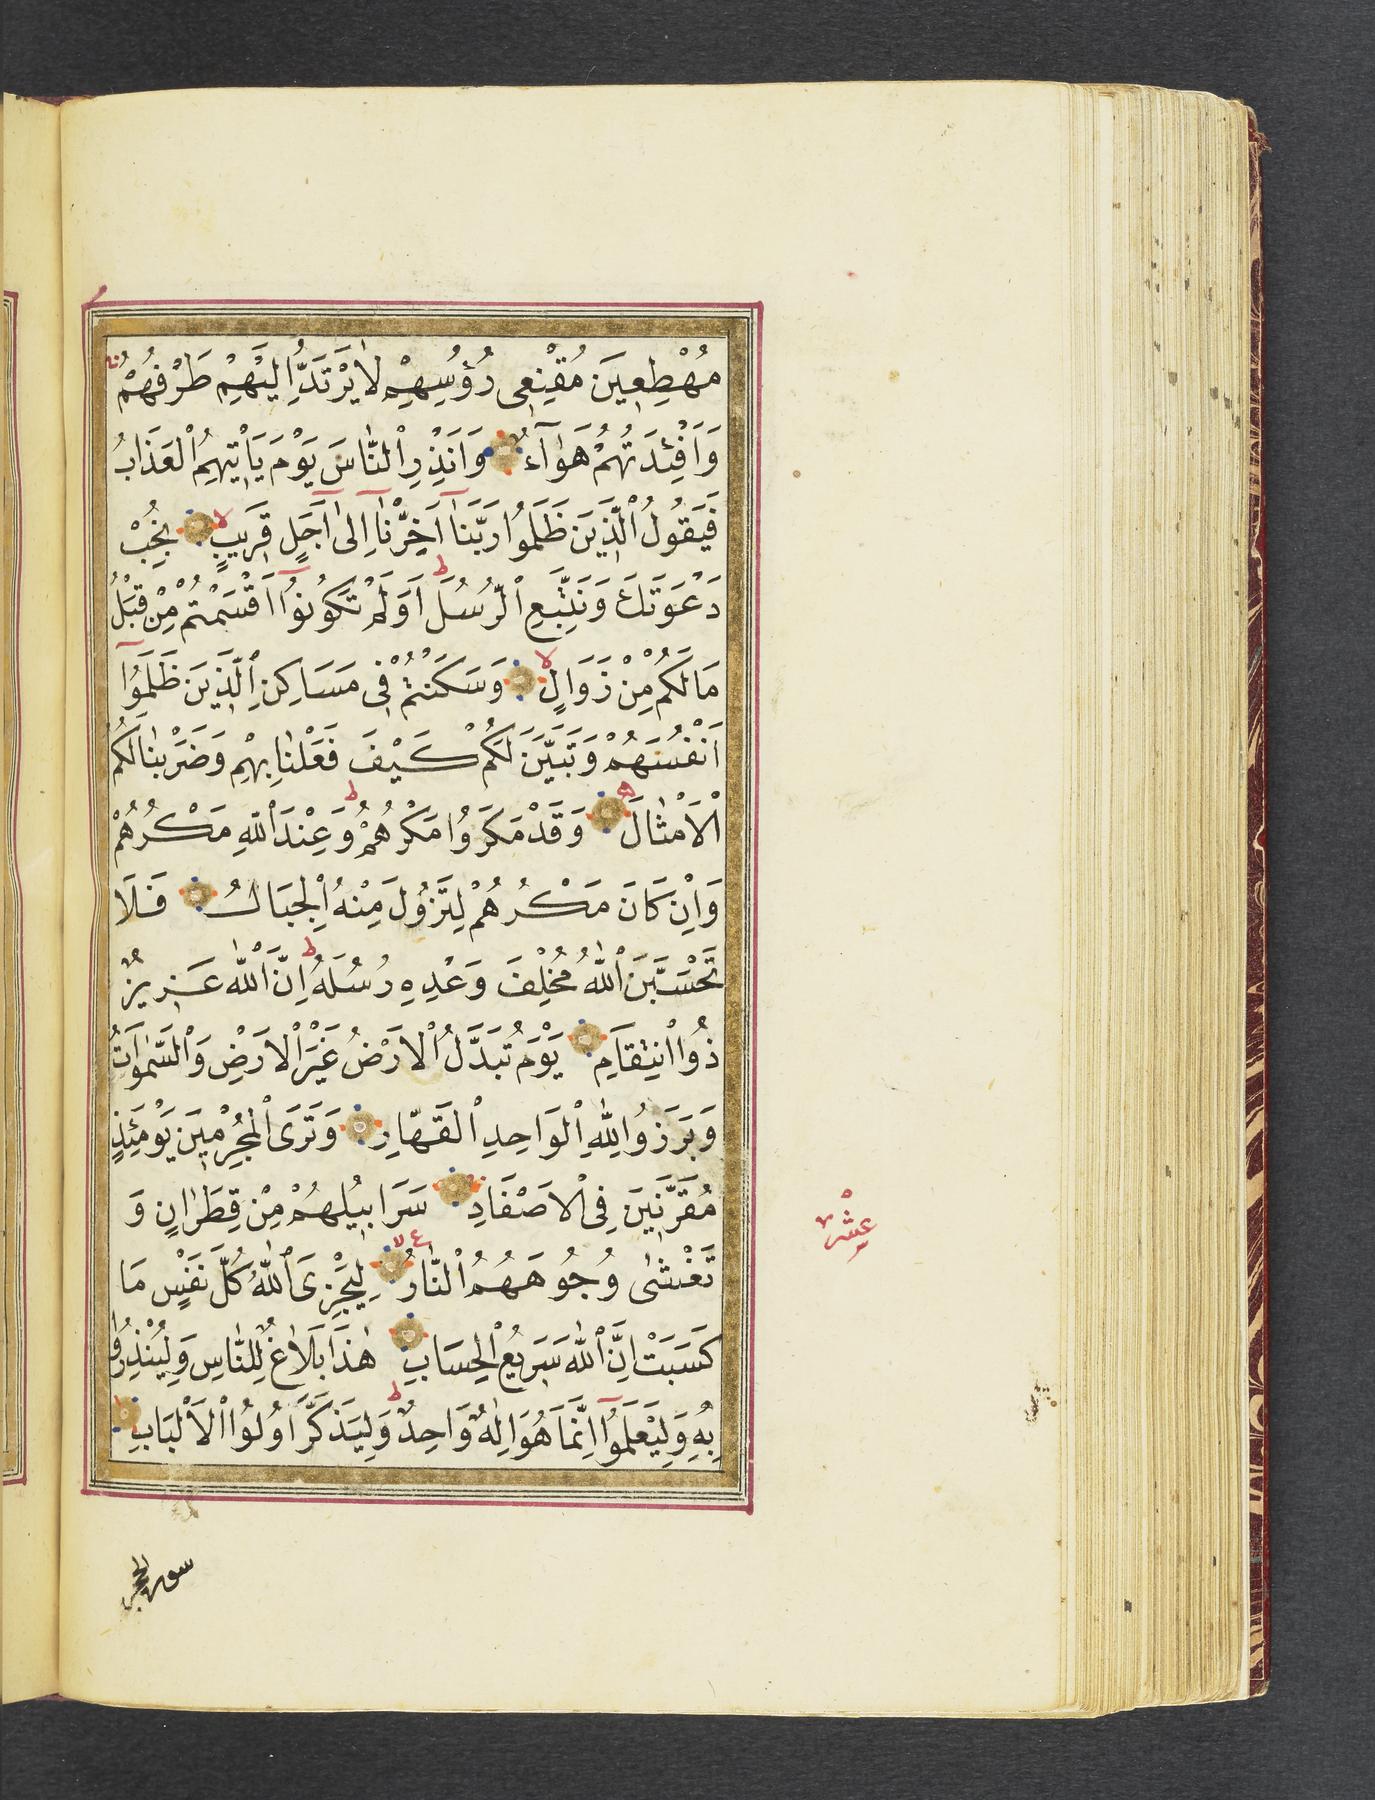 مُهْطِعِينَ مُقْنِعِى رُؤُسِهِمْ لَا يَرْتَدُّ اِلَيْهِمْ طَرْفُهُمْ
وَاَفْئِدَتُهُمْ هَوَآءٌ وَاَنْذِرِ النَّاسَ يَوْمَ يَأْتِيهِمُ الْعَذَابُ
فَيَقُولُ الَّذِينَ ظَلَمُوا رَبَّنَآ اَخِّرْنَآ اِلٰىٓ اَجَلٍ قَرِيبٍ نُجِبْ
دَعْوَتَكَ وَنَتَّبِعِ الرُّسُلَ اَوَلَمْ تَكُونُوٓا اَقْسَمْتُمْ مِنْ قَبْلُ
مَا لَكُمْ مِنْ زَوَالٍ وَسَكَنْتُمْ فِى مَسَاكِنِ الَّذِينَ ظَلَمُوٓا
اَنْفُسَهُمْ وَتَبَيَّنَ لَكُمْ كَيْفَ فَعَلْنَا بِهِمْ وَضَرَبْنَا لَكُمُ
الْاَمْثَالَ وَقَدْ مَكَرُوا مَكْرَهُمْ وَعِنْدَ اللّٰهِ مَكْرُهُمْ
وَاِنْ كَانَ مَكْرُهُمْ لِتَزُولَ مِنْهُ الْجِبَالُ فَلَا
تَحْسَبَنَّ اللّٰهَ مُخْلِفَ وَعْدِهِ رُسُلَهُ اِنَّ اللّٰهَ عَزِيزٌ
ذُو انْتِقَامٍ يَوْمَ تُبَدَّلُ الْاَرْضُ غَيْرَ الْاَرْضِ وَالسَّمٰوَاتُ
وَبَرَزُوا لِلّٰهِ الْوَاحِدِ الْقَهَّارِ وَتَرَى الْمُجْرِمِينَ يَوْمَئِذٍ
مُقَرَّنِينَ فِى الْاَصْفَادِ سَرَابِيلُهُمْ مِنْ قَطِرَانٍ وَ
تَغْشٰى وُجُوهَهُمُ النَّارُ لِيَجْزِىَ اللّٰهُ كُلَّ نَفْسٍ مَا
كَسَبَتْ اِنَّ اللّٰهَ سَرِيعُ الْحِسَابِ هٰذَا بَلَاغٌ لِلنَّاسِ وَلِيُنْذَرُوا
بِهِ وَلِيَعْلَمُوٓا اَنَّمَا هُوَ اِلٰهٌ وَاحِدٌ وَلِيَذَّكَّرَ اُولُوا الْاَلْبَابِ
عشر
سورة الحجر